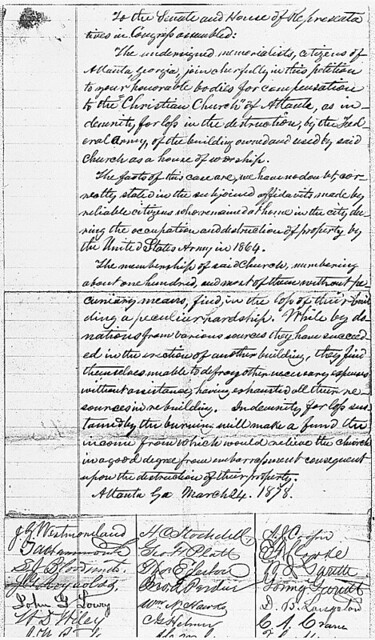 To the Senate and House of Representa
tives in Congress assembled:
The undersigned memorialists, citizens of
Atlanta Georgia, join cherfully in this petition
to your honorable bodies for compensation
to the "Christian Church" of Atlanta, as in-
demnity for loss in the destruction, by the Fed
eral Army, of the building owned and used by said
Church as a house of worship.
The facts of this case are, we have no doubt, cor
rectly stated in the subjoined affidavits made by
reliable citizens who remained at home in the city du
ring the occupation and destruction of property by
the United States Army in 1864.
The membership of said Church, numbering
about one hundred, and most of them without pe
cuniary means, find, in the loss of their buil
ding a peculiar hardship. While by do
nations from various sources they have succeed
ed in the erection of another building, they find
themselves unable to defray other necessary expenses
without assistance, having exhausted all their re
sources in rebuilding. Indemnity for loss sus
tained by the burning will make a fund the
income from which would relieve the church
in a good degree from embarrassment consequent
upon the destruction of their property.
Atlanta Ga March 24. 1878.
J. G. Westmoreland
H C Stockdell
Geo. H. Platt
J. G. Reynolds
John G. Lowry
W D Wiley
Wm N. Hawks
D. B. Langston
C. A. Crane